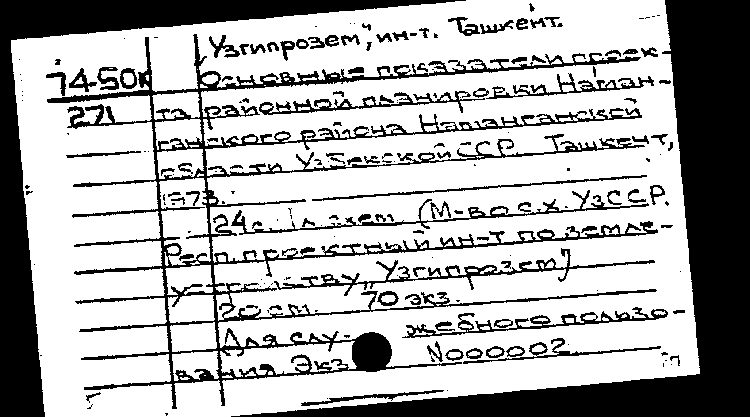 „Узгипрозем", ин-т. Ташкент.
74-50к Основные показатели проек-
271 та районной планировки Наман-
ганского района Наманганской
области Узбекской ССР. Ташкент,
1973.
24с. 1 л. схем. (М-во с.х. УзССР.
Респ. проектный ин-т по земле-
устройству „Узгипрозем")
20 см. 70 экз.
Для слу- жебного пользо-
вания. Экз. N000002.